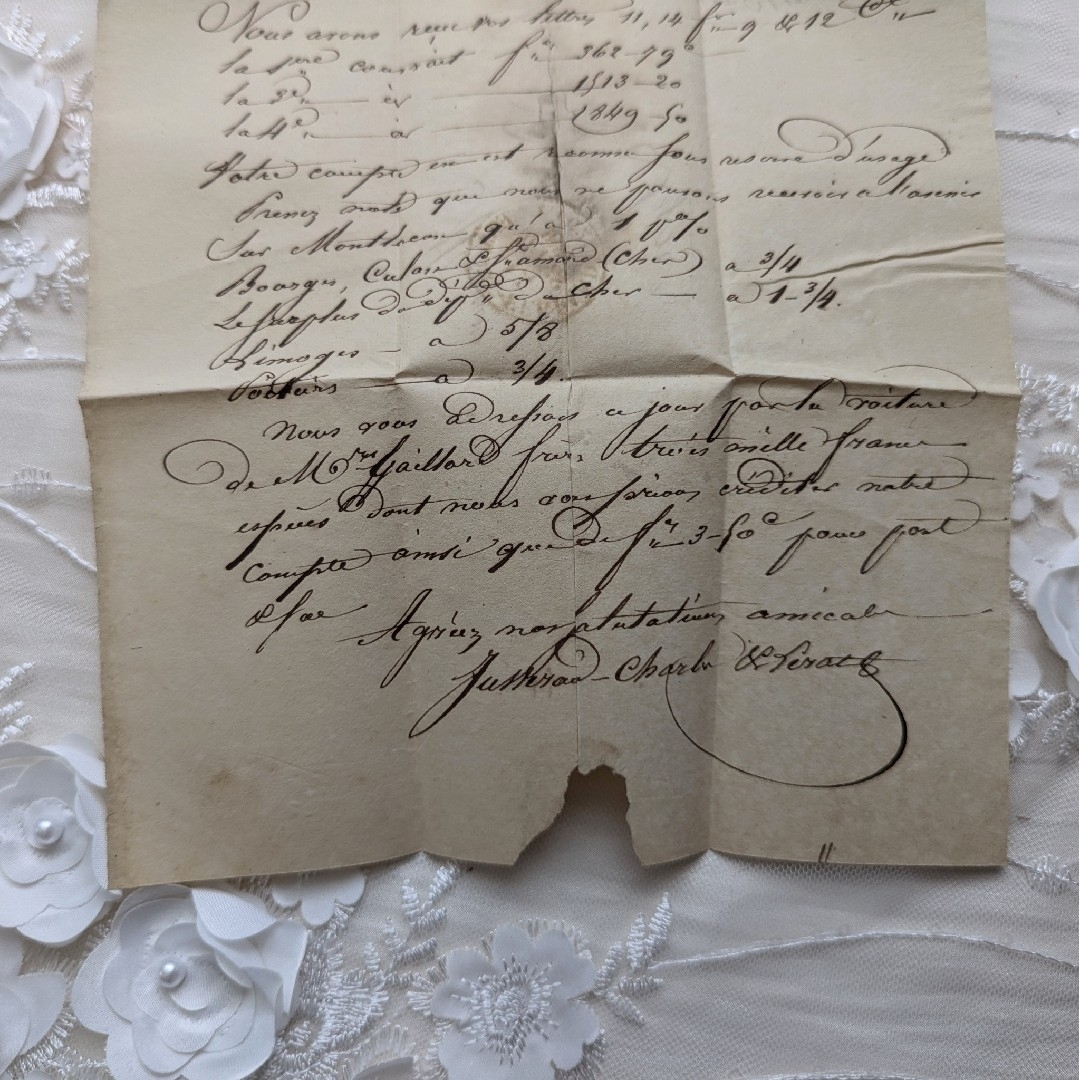 Nous avons reçu vos lettres 11, 14 fr 9 & 12 Ct
la 1ere couvrait fr 362-79c
la 3e — de — 1513-20
la 4e — de — 1849-50
Votre compte en est reconnu sous reserve d'usage
Prenez note que nous ne pouvons recevoir a l'avenir
Sur Montlucon qu'a 1 p%
Bourges, Culan & St amand (Cher) a 3/4
Le surplus du dept du Cher — a 1-3/4.
Limoges — a 5/8
Poitiers — a 3/4.
Nous vous adressons ce jour par la voiture
de Mrs Gaillard frères trois mille francs
espèces dont nous vous prions créditer notre
compte ainsi que de fr 3-50c pour port
& sac
Agréez nos salutations amicales
Jusseraud-Charles &